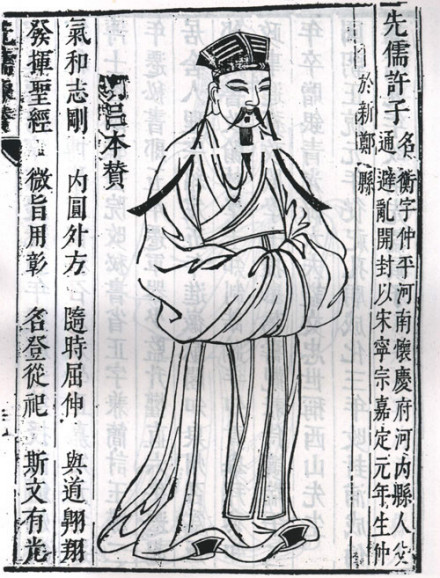 先儒許子
名衡字仲平河南懷慶府河内縣人父
通避亂開封以宋寧宗嘉定元年生仲
於新鄭縣
呂本贊
氣和志剛 内圓外方 隨時屈伸 與道翺翔
發揮聖經 微旨用彰 名登從祀 斯文有光